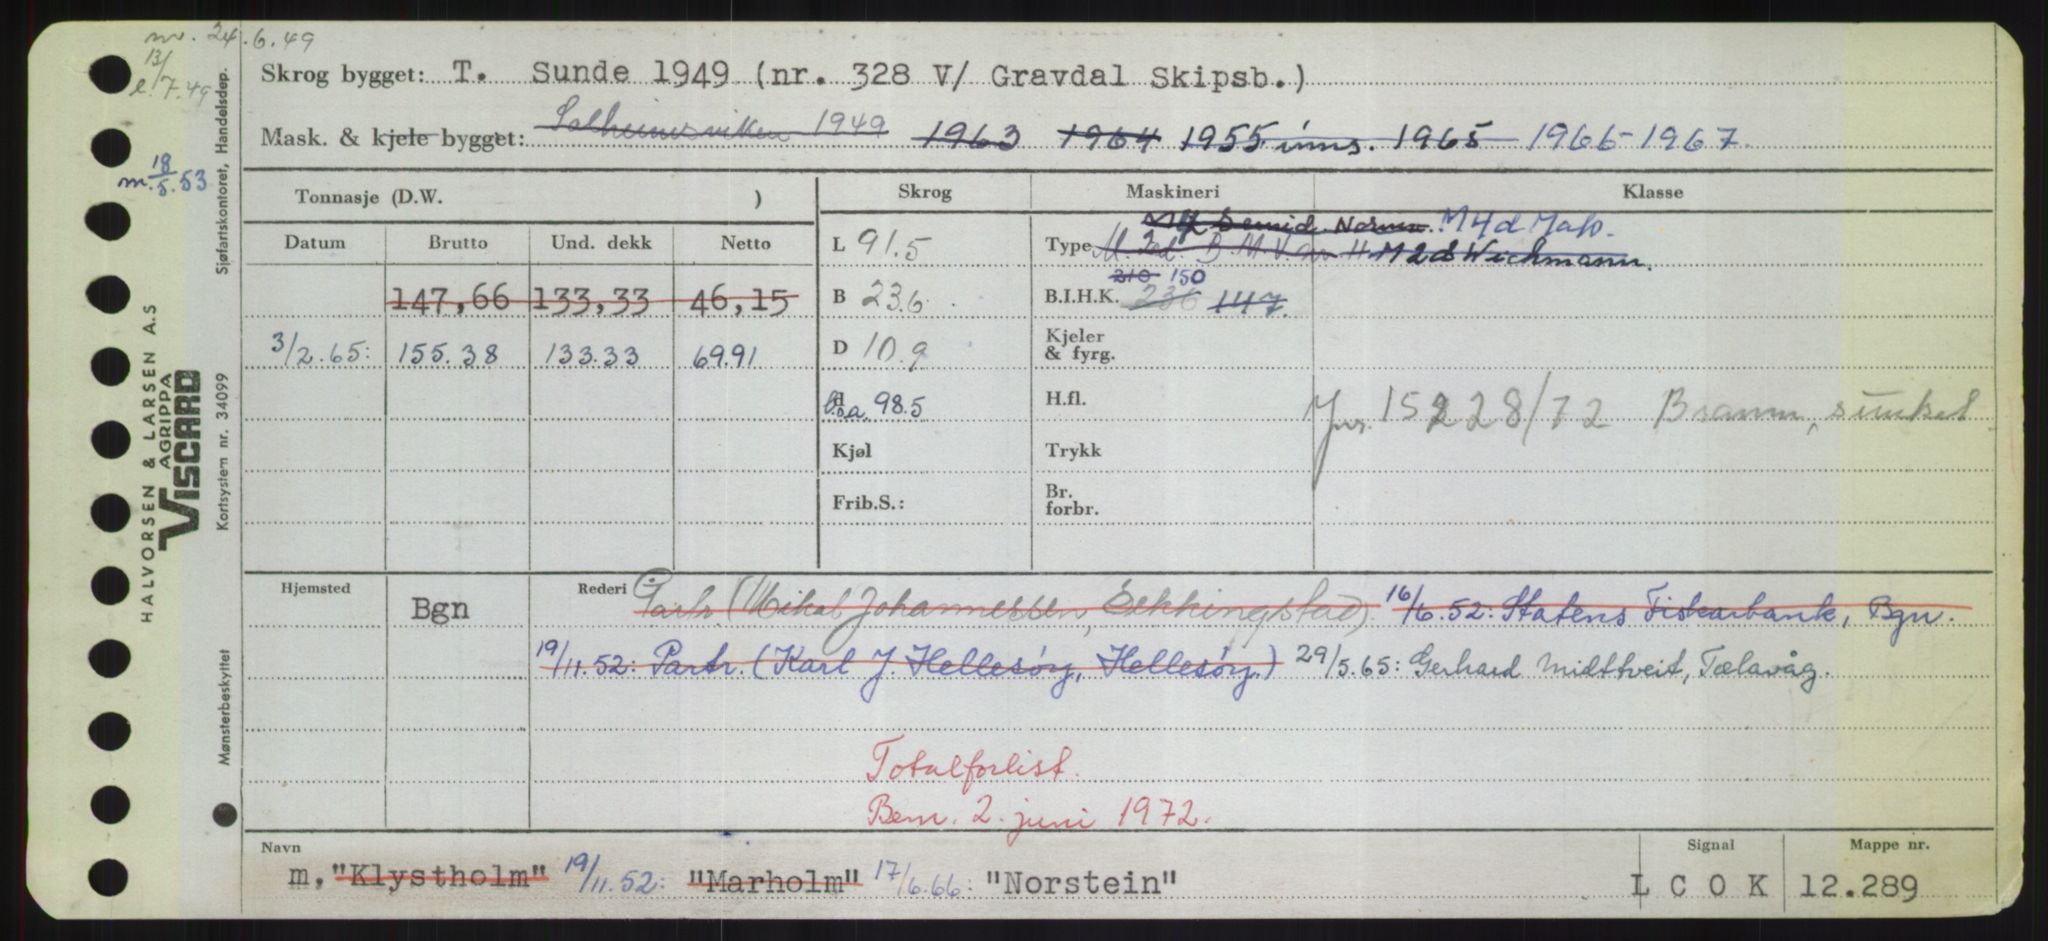 nv. 24.6.49
13/
l. 7.49
Skrog bygget: T. Sunde 1949 (nr. 328 V/ Gravdal Skipsb.)
Mask. & kjele bygget: Solheimsviken 1949 1963 1964 1955 inns. 1965 1966-1967.
m. 18/5.53
Tonnasje (D.W. )
Skrog
Maskineri
Klasse
Datum Brutto Und. dekk Netto
147,66 133,33 46,15
3/2.65: 155.38 133.33 69.91
L 91.5
B 23.6
D 10.9
l.o.a. 98.5
Kjøl
Frib.S.:
Normo. M4d
Type M. 2 M2d Wichmann.
210 150
B.I.H.K. 236 147.
Kjeler
& fyrg.
H.fl.
Trykk
Br.
forbr.
Jnr. 15228/72 Brann, sunket
Hjemsted
Bgn
Rederi Partr. (Mikal Johannessen, Sekkingstad). 16/6.52: Statens Fiskarbank, Bgn.
19/11.52: Partr. (Karl J. Hellesøy, Hellesøy.) 29/5.65: Gerhard Midttveit, Tælavåg.
Totalforlist.
Bem. 2. juni 1972.
Navn
m, "Klystholm" 19/11.52: "Marholm" 17/6.66: "Norstein"
Signal
L C O K
Mappe nr.
12.289
HALVORSEN & LARSEN A.S
AGRIPPA
VISCARD
Mønsterbeskyttet Kortsystem nr. 34099 Sjøfartskontoret, Handelsdep.